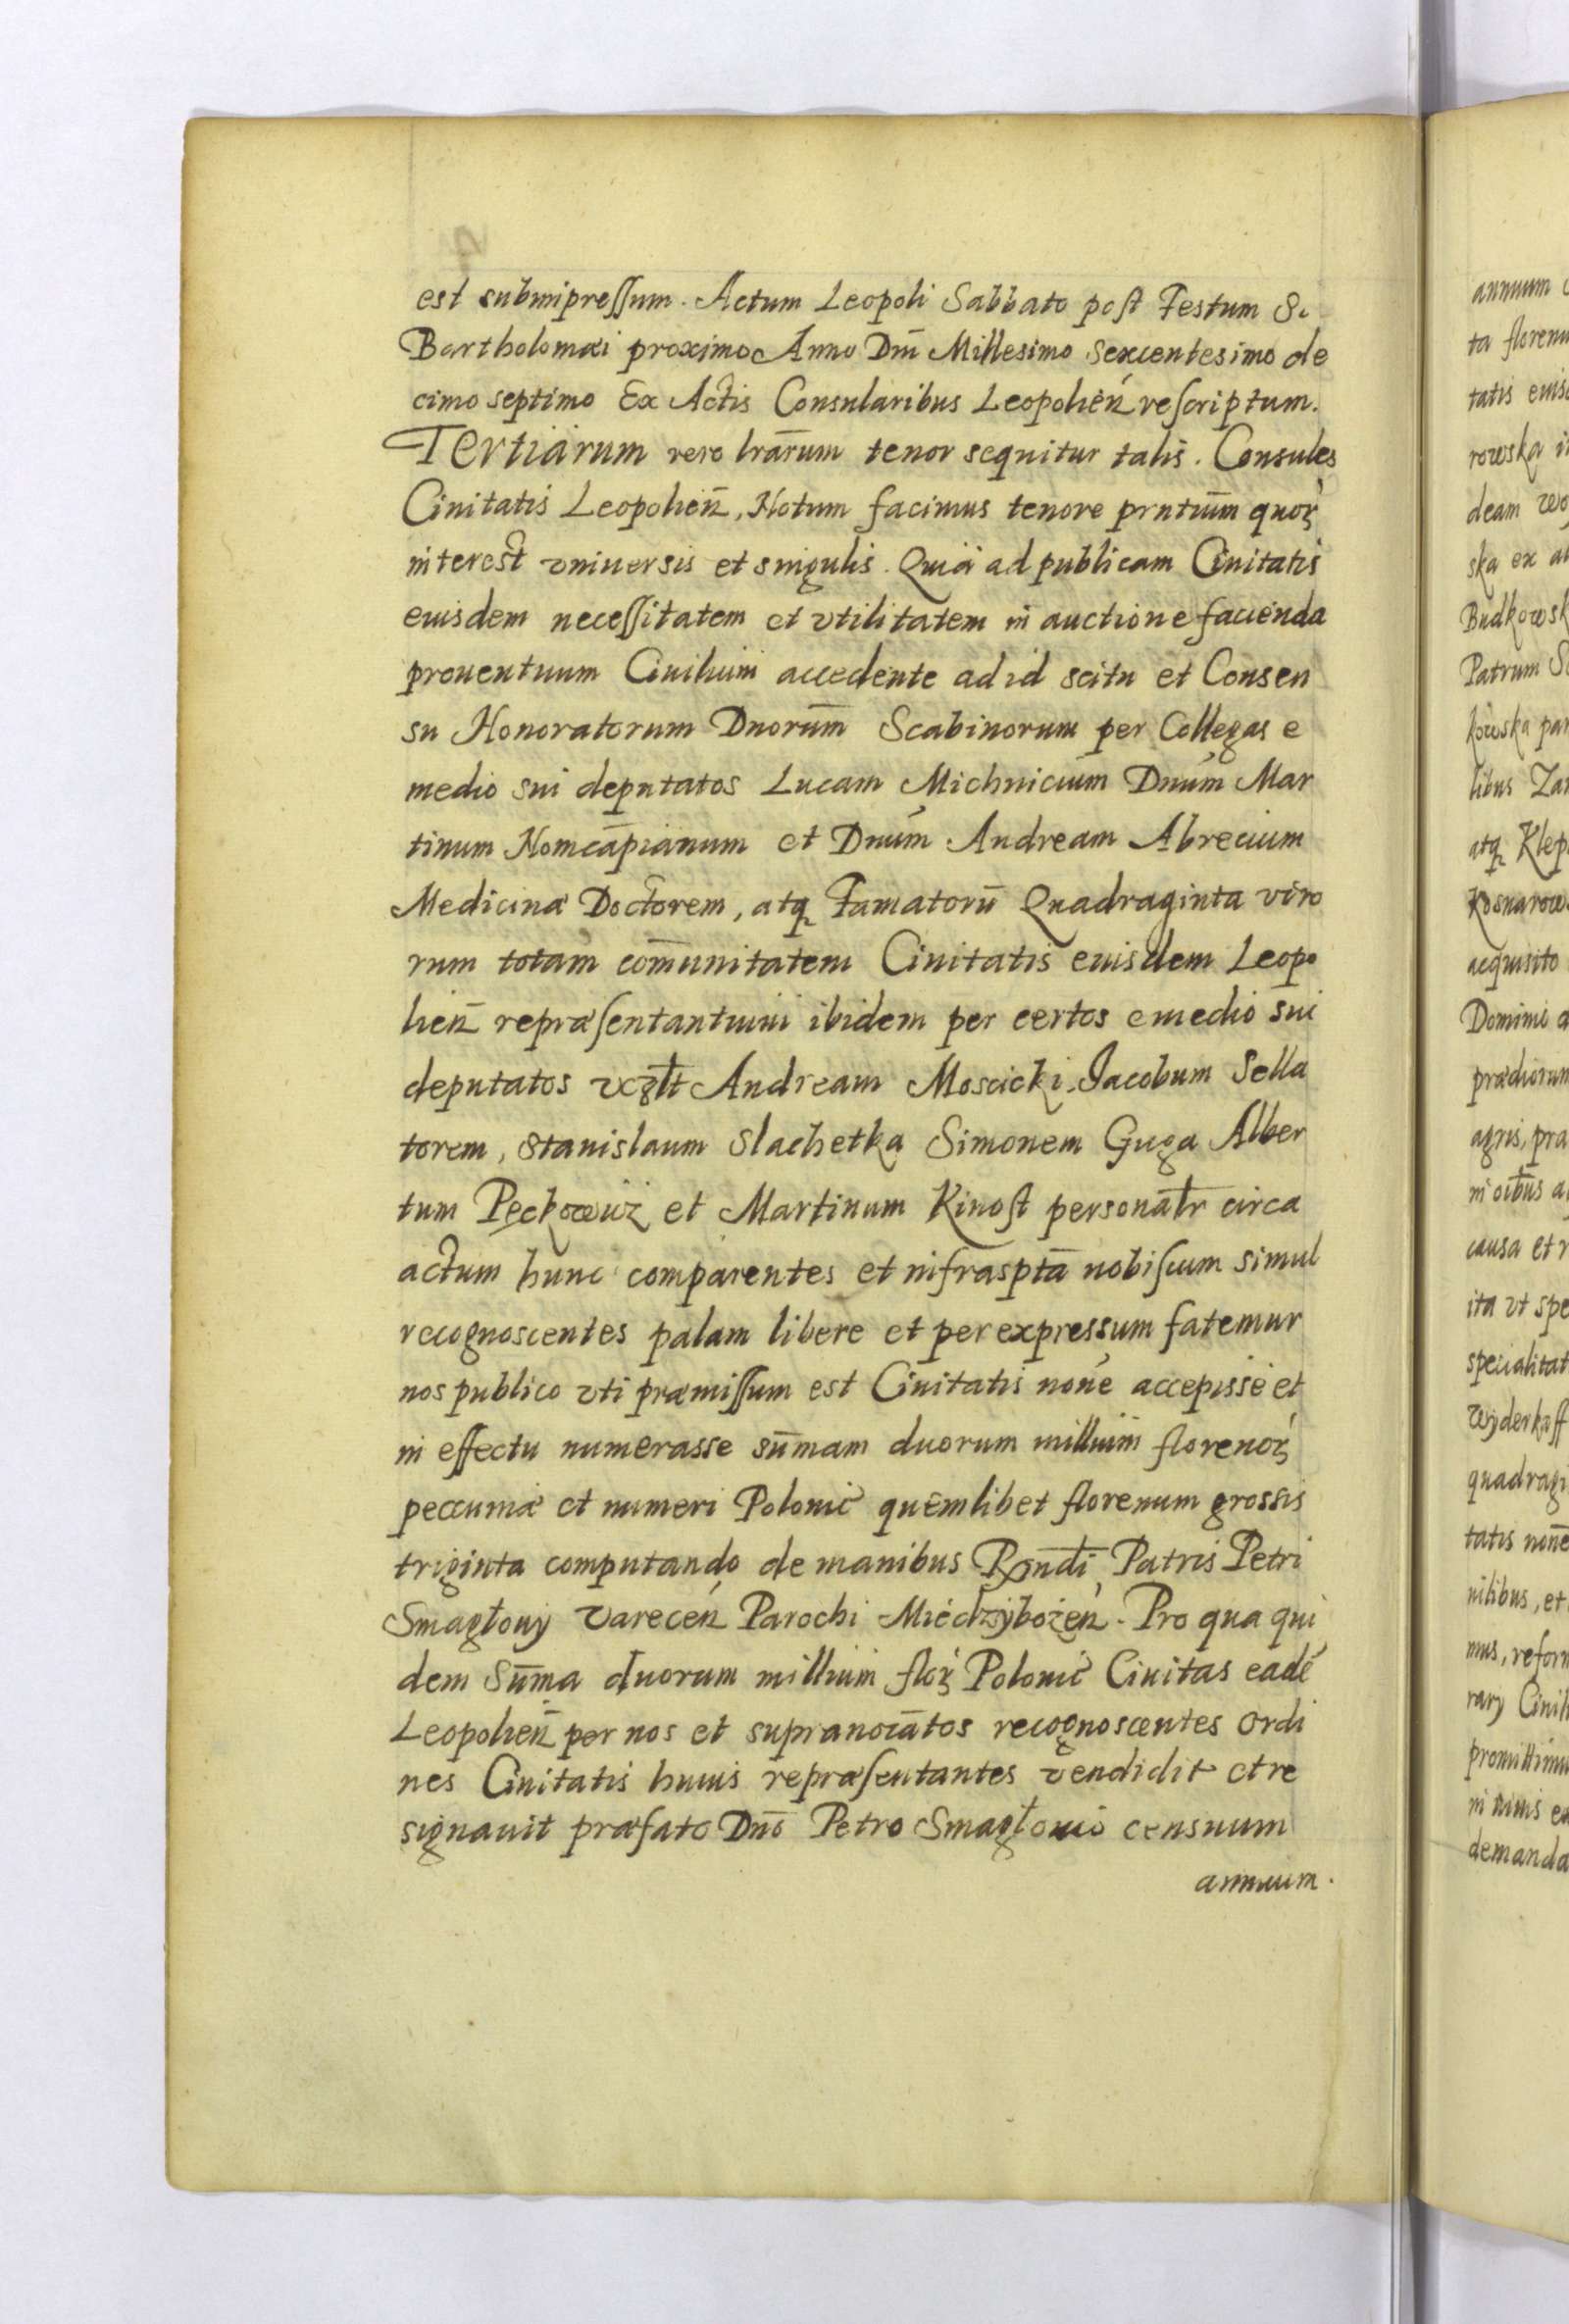 est subimpressum. Actum Leopoli Sabbato post Festum S.
Bartholomæi proximo Anno Dni Millesimo Sexcentesimo de
cimo septimo Ex Actis Consularibus Leopolien rescriptum.
Tertiarum vero lrarum tenor sequitur talis. Consules
Ciuitatis Leopolien, Notum facimus tenore prntium quor
interest vniuersis et singulis. Quia ad publicam Ciuitatis
eiusdem necessitatem et vtilitatem in auctione facienda
prouentuum Ciuilium accedente ad id scitu et Consen
su Honoratorum Dnorum Scabinorum per Collegas e
medio sui deputatos Lucam Michnicium Dnum Mar
tinum Nomcampianum et Dnum Andream Abrecium
Medicinæ Doctorem, atq Famatoru Quadraginta viro
rum totam comunitatem Ciuitatis eiusdem Leopo
lien repræsentantium ibidem per certos e medio sui
deputatos vczlt Andream Moscicki Jacobum Sella
torem, Stanislaum Slachetka Simonem Guga Alber
tum Pęckowiz et Martinum Kinost personalr circa
actum hunc comparentes et infraspta nobiscum simul
recognoscentes palam libere et per expressum fatemur
nos publico vti præmissum est Ciuitatis none accepisse et
in effectu numerasse sumam duorum millium florenor
peccuniæ et numeri Polonic quemlibet florenum grossis
triginta computando de manibus Rndi Patris Petri
Smagłouij Varecen Parochi Miedzÿbożen. Pro qua qui
dem Suma duorum millium flor Polonic Ciuitas eade
Leopolien per nos et supranoiatos recognoscentes Ordi
nes Ciuitatis huius repræsentantes vendidit et re
signauit præfato Dno Petro Smagłouio censuum
annuum.
annuum
ta floren
tatis eius
rowska i
deam
ska ex a
Budkowsk
Patrum S
kowska pa
libus Za
atq Klep
Kosnarow
acquisito
Domini a
prædiorum
agris, pra
in oibus a
causa et r
ita vt spe
specialitat
Wyderkaff
quadragi
tatis none
uilibus, et
mus, refor
rarÿ Ciuil
promittimu
in huius
demanda